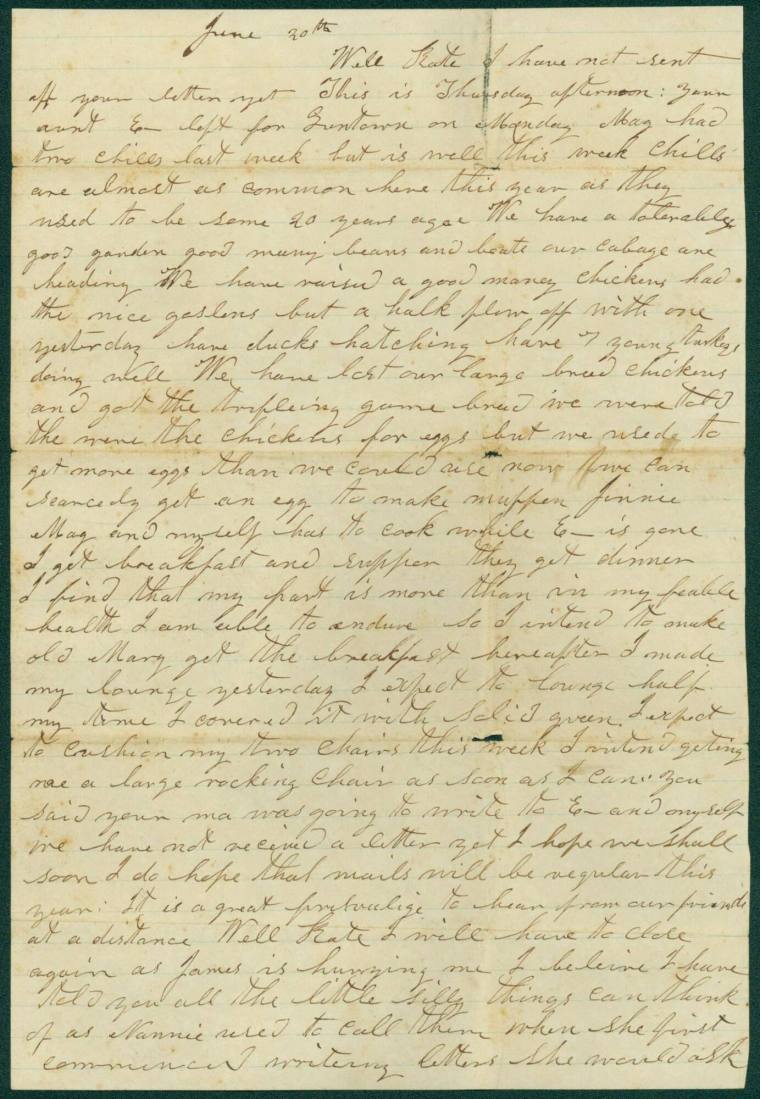 June 20th
Well Kate I have not sent
off your letter yet This is Thursday afternoon: your
aunt E— left for Guntown on Monday Mag had
two chills last week but is well this week Chills
are almost as common here this year as they
used to be some 20 years agoe We have a tolerabley
good garden good many beans and beats our cabage are
heading We have raised a good maney chickens had
the nice goslens but a halk flew off with one
yesterday have ducks hatching have 7 young turkeys
doing well We have lost our large breed chickens
and got the trifleing game breed we were told
the were the chickens for eggs but we used to
get more eggs than we could use now we can
scarcely get an egg to make muffen Jinnie
Mag and myself has to cook while E— is gone
I get breakfast and supper they get dinner
I find that my part is more than in my feable
health I am able to endure so I intend to make
old Mary get the breakfast hereafter I made
my lounge yesterday I expect to lounge half
my time I covered it with solid green. I expect
to cushion my two chairs this week I intend geting
me a large rocking chair as soon as I can. you
said your ma was going to write to E— and myself
we have not received a letter yet I hope we shall
soon I do hope that mails will be regular this
year: It is a great to hear from our friends
at a distance Well Kate I will have to close
again as James is hurrying me I beleive I have
told you all the little silly things can think
of as Nannie used to call them when she first
commenced writing letters she would ask